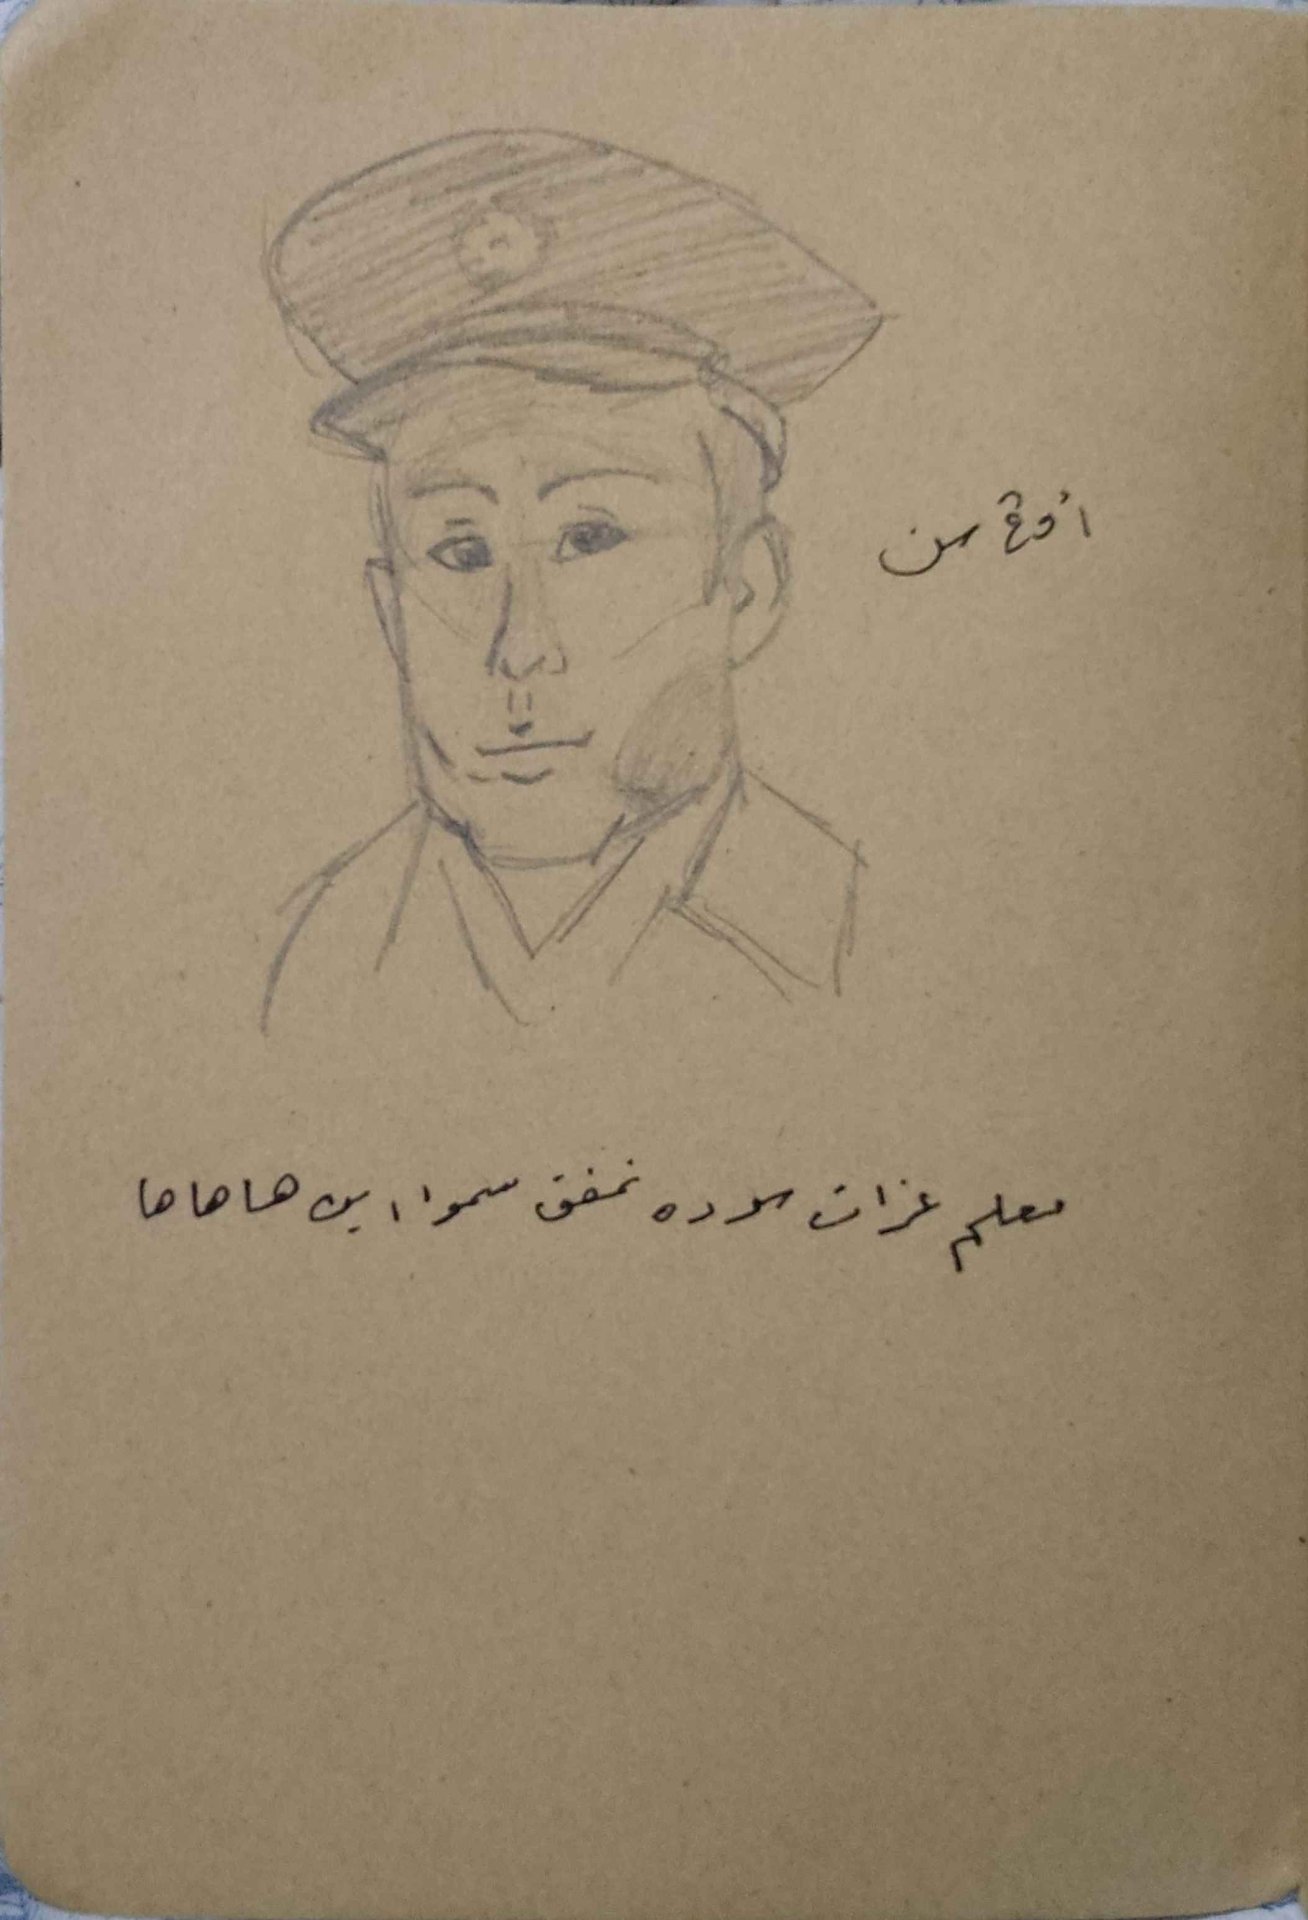 أوڠ سن
معلم عزات سوده نمفق سموا اين هاهاها